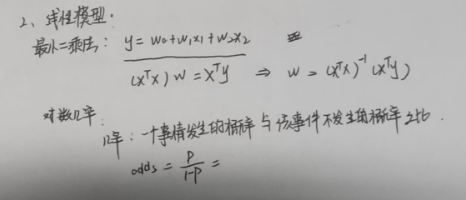 2、线性模型.
最小二乘法: y = w₀+w₁x₁+w₂x₂
(xᵀx) w = xᵀy ⇒ w = (xᵀx)⁻¹(xᵀy)
对数几率:
几率: 一个事情发生的概率与该事件不发生的概率之比.
odds = p/(1-p) =